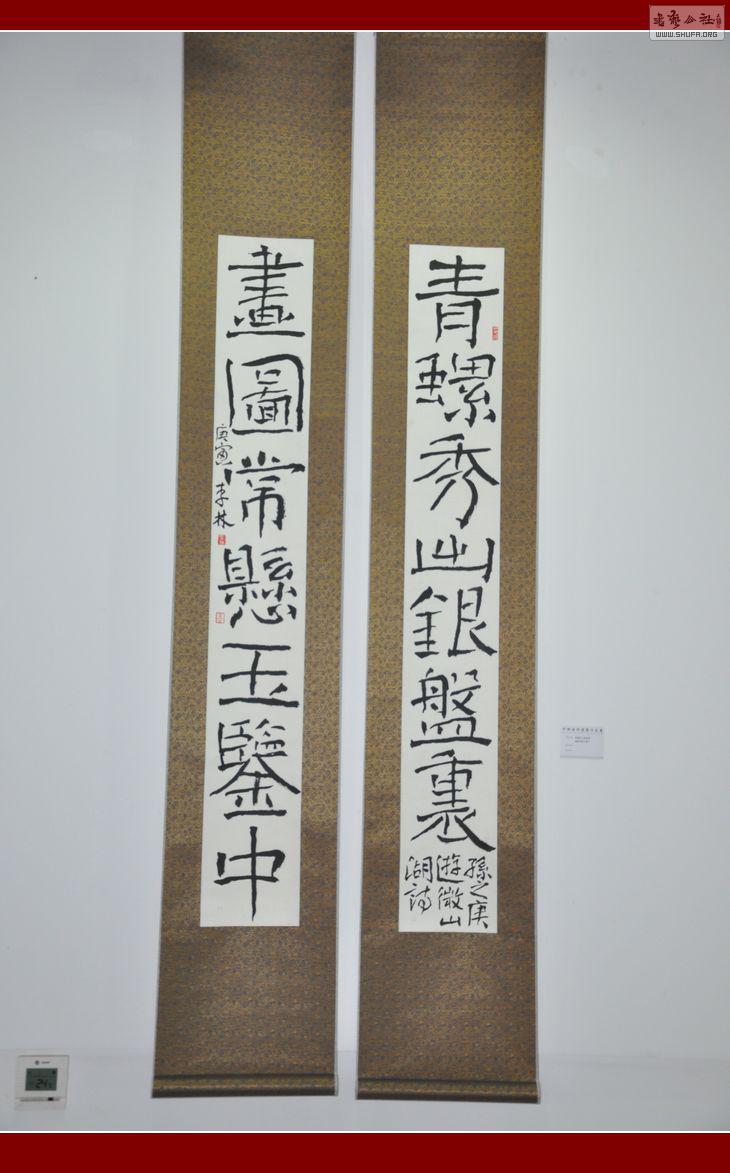 青螺秀出銀盤裏
孫之庚
遊微山
湖詩
畫圖常懸玉鑒中
庚寅 李林
書藝公社
WWW.SHUFA.ORG
24